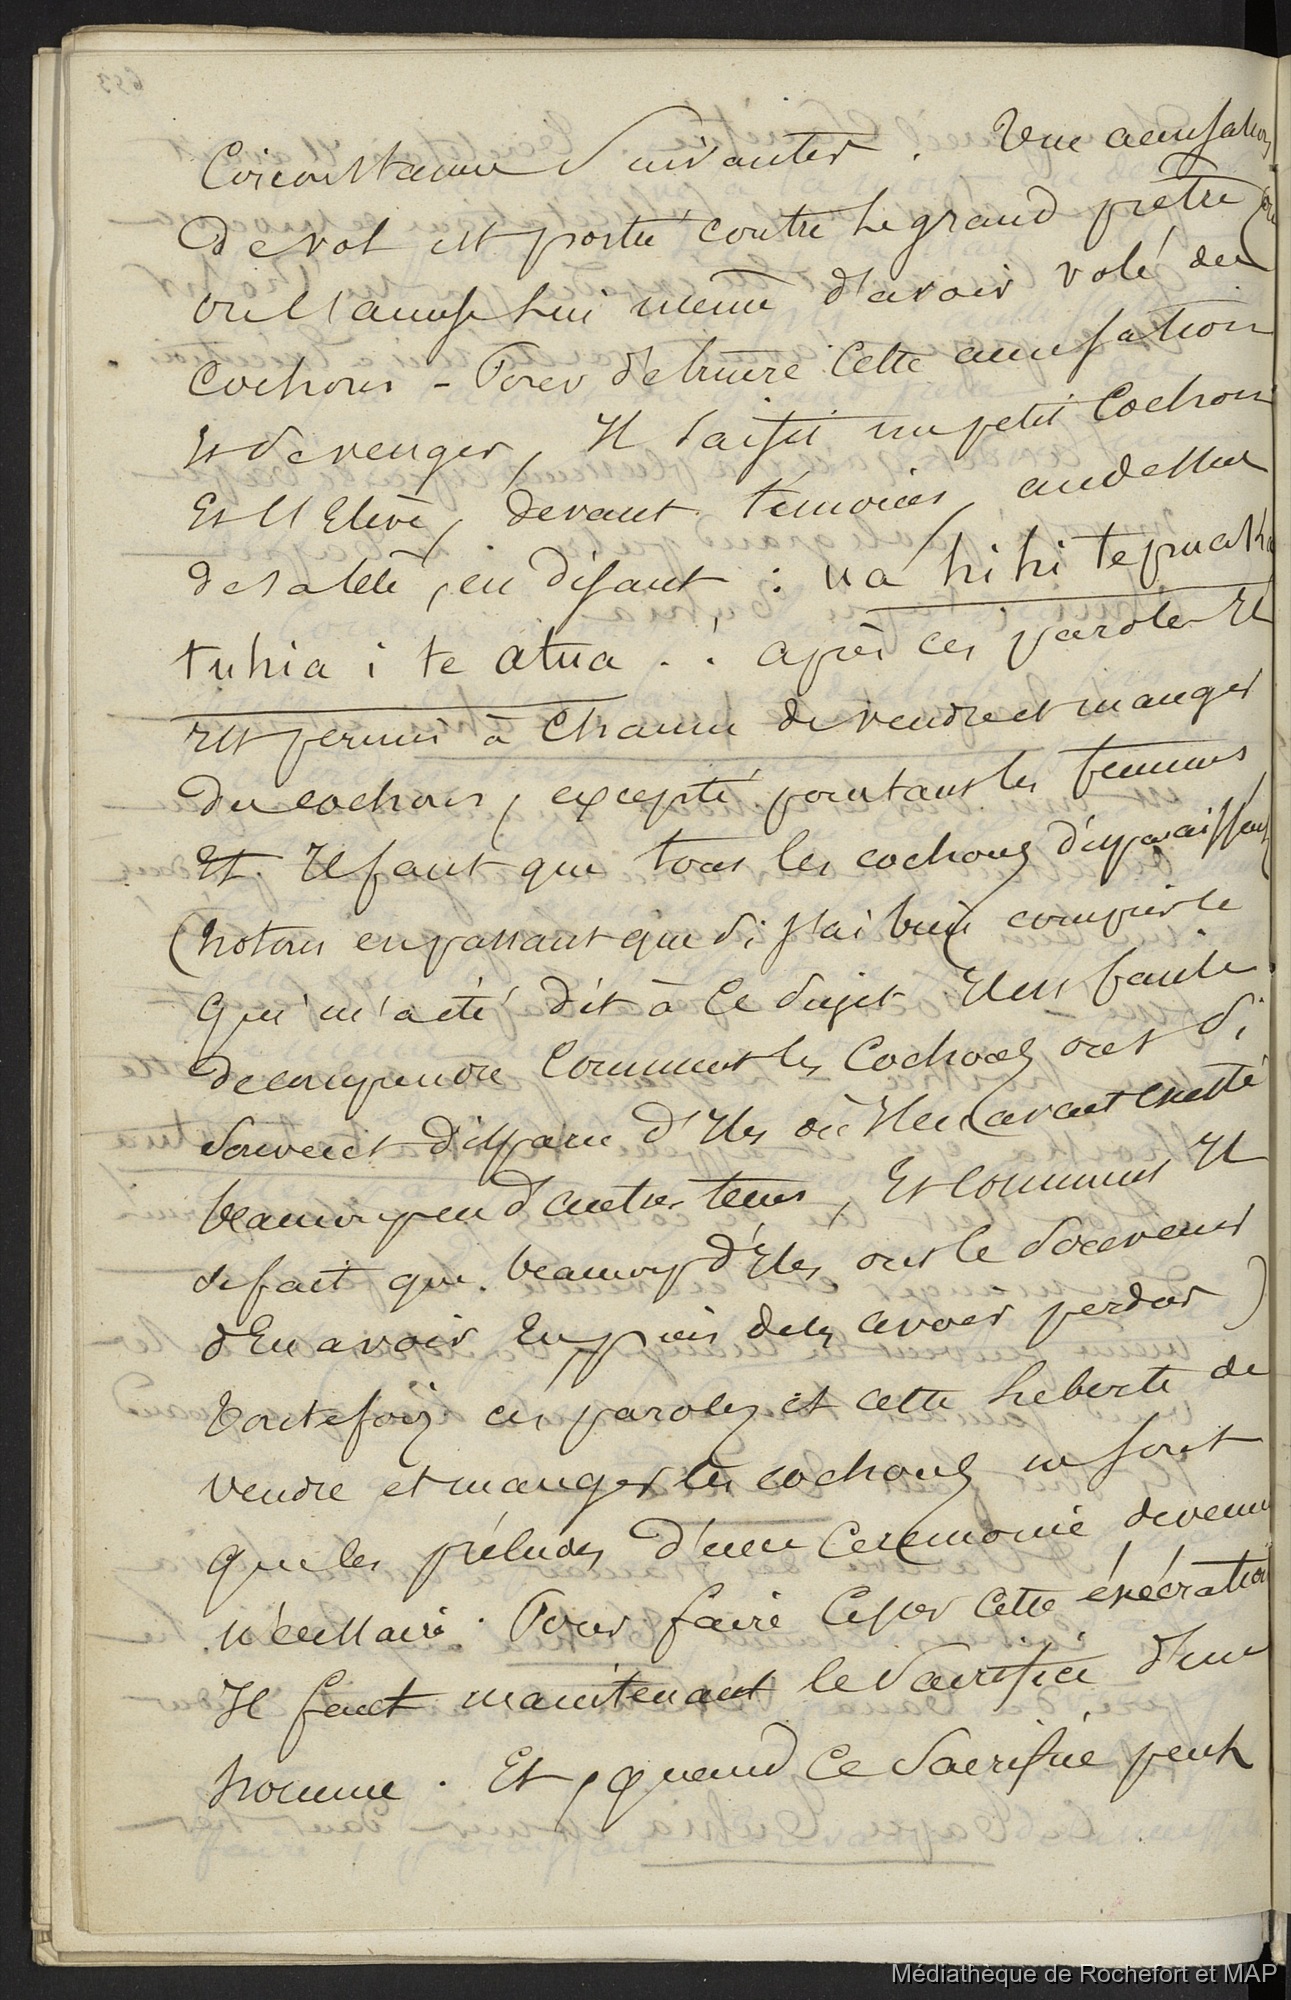 Circonstances Suivantes. Une accusation
de vol est portée contre le grand prêtre ou
on l'accuse lui même d'avoir volé des
Cochons - Pour détruire Cette accusation
Et se venger, Il saisit un petit Cochon
Et l'Elève, devant témoins, au dessus
de sa tête, en disant : ua hihi te puaka
tuhia i te atua . : après ces paroles Il
est permis à Chacun de vendre et manger
des cochons, excepté pourtant les femmes
Et Il faut que tous les cochons disparaissent
(notons en passant que si j'ai bien compris ce
qui m'a été dit à ce sujet Il est facile
de comprendre Comment les Cochons ont si
souvent disparu d'Iles où Il en avait existé
beaucoup en d'autres tems, Et Comment Il
se fait que beaucoup d'Iles ont le Souvenir
d'En avoir Eu puis de les avoir perdus)
Toutefois ces paroles et cette liberté de
vendre et manger les cochons ne sont
que les préludes d'une Ceremonie devenue
nécessaire. Pour faire cesser Cette exécration
Il faut maintenant le Sacrifice d'un
homme. Et, quand Ce Sacrifice peut
Médiathèque de Rochefort et MAP